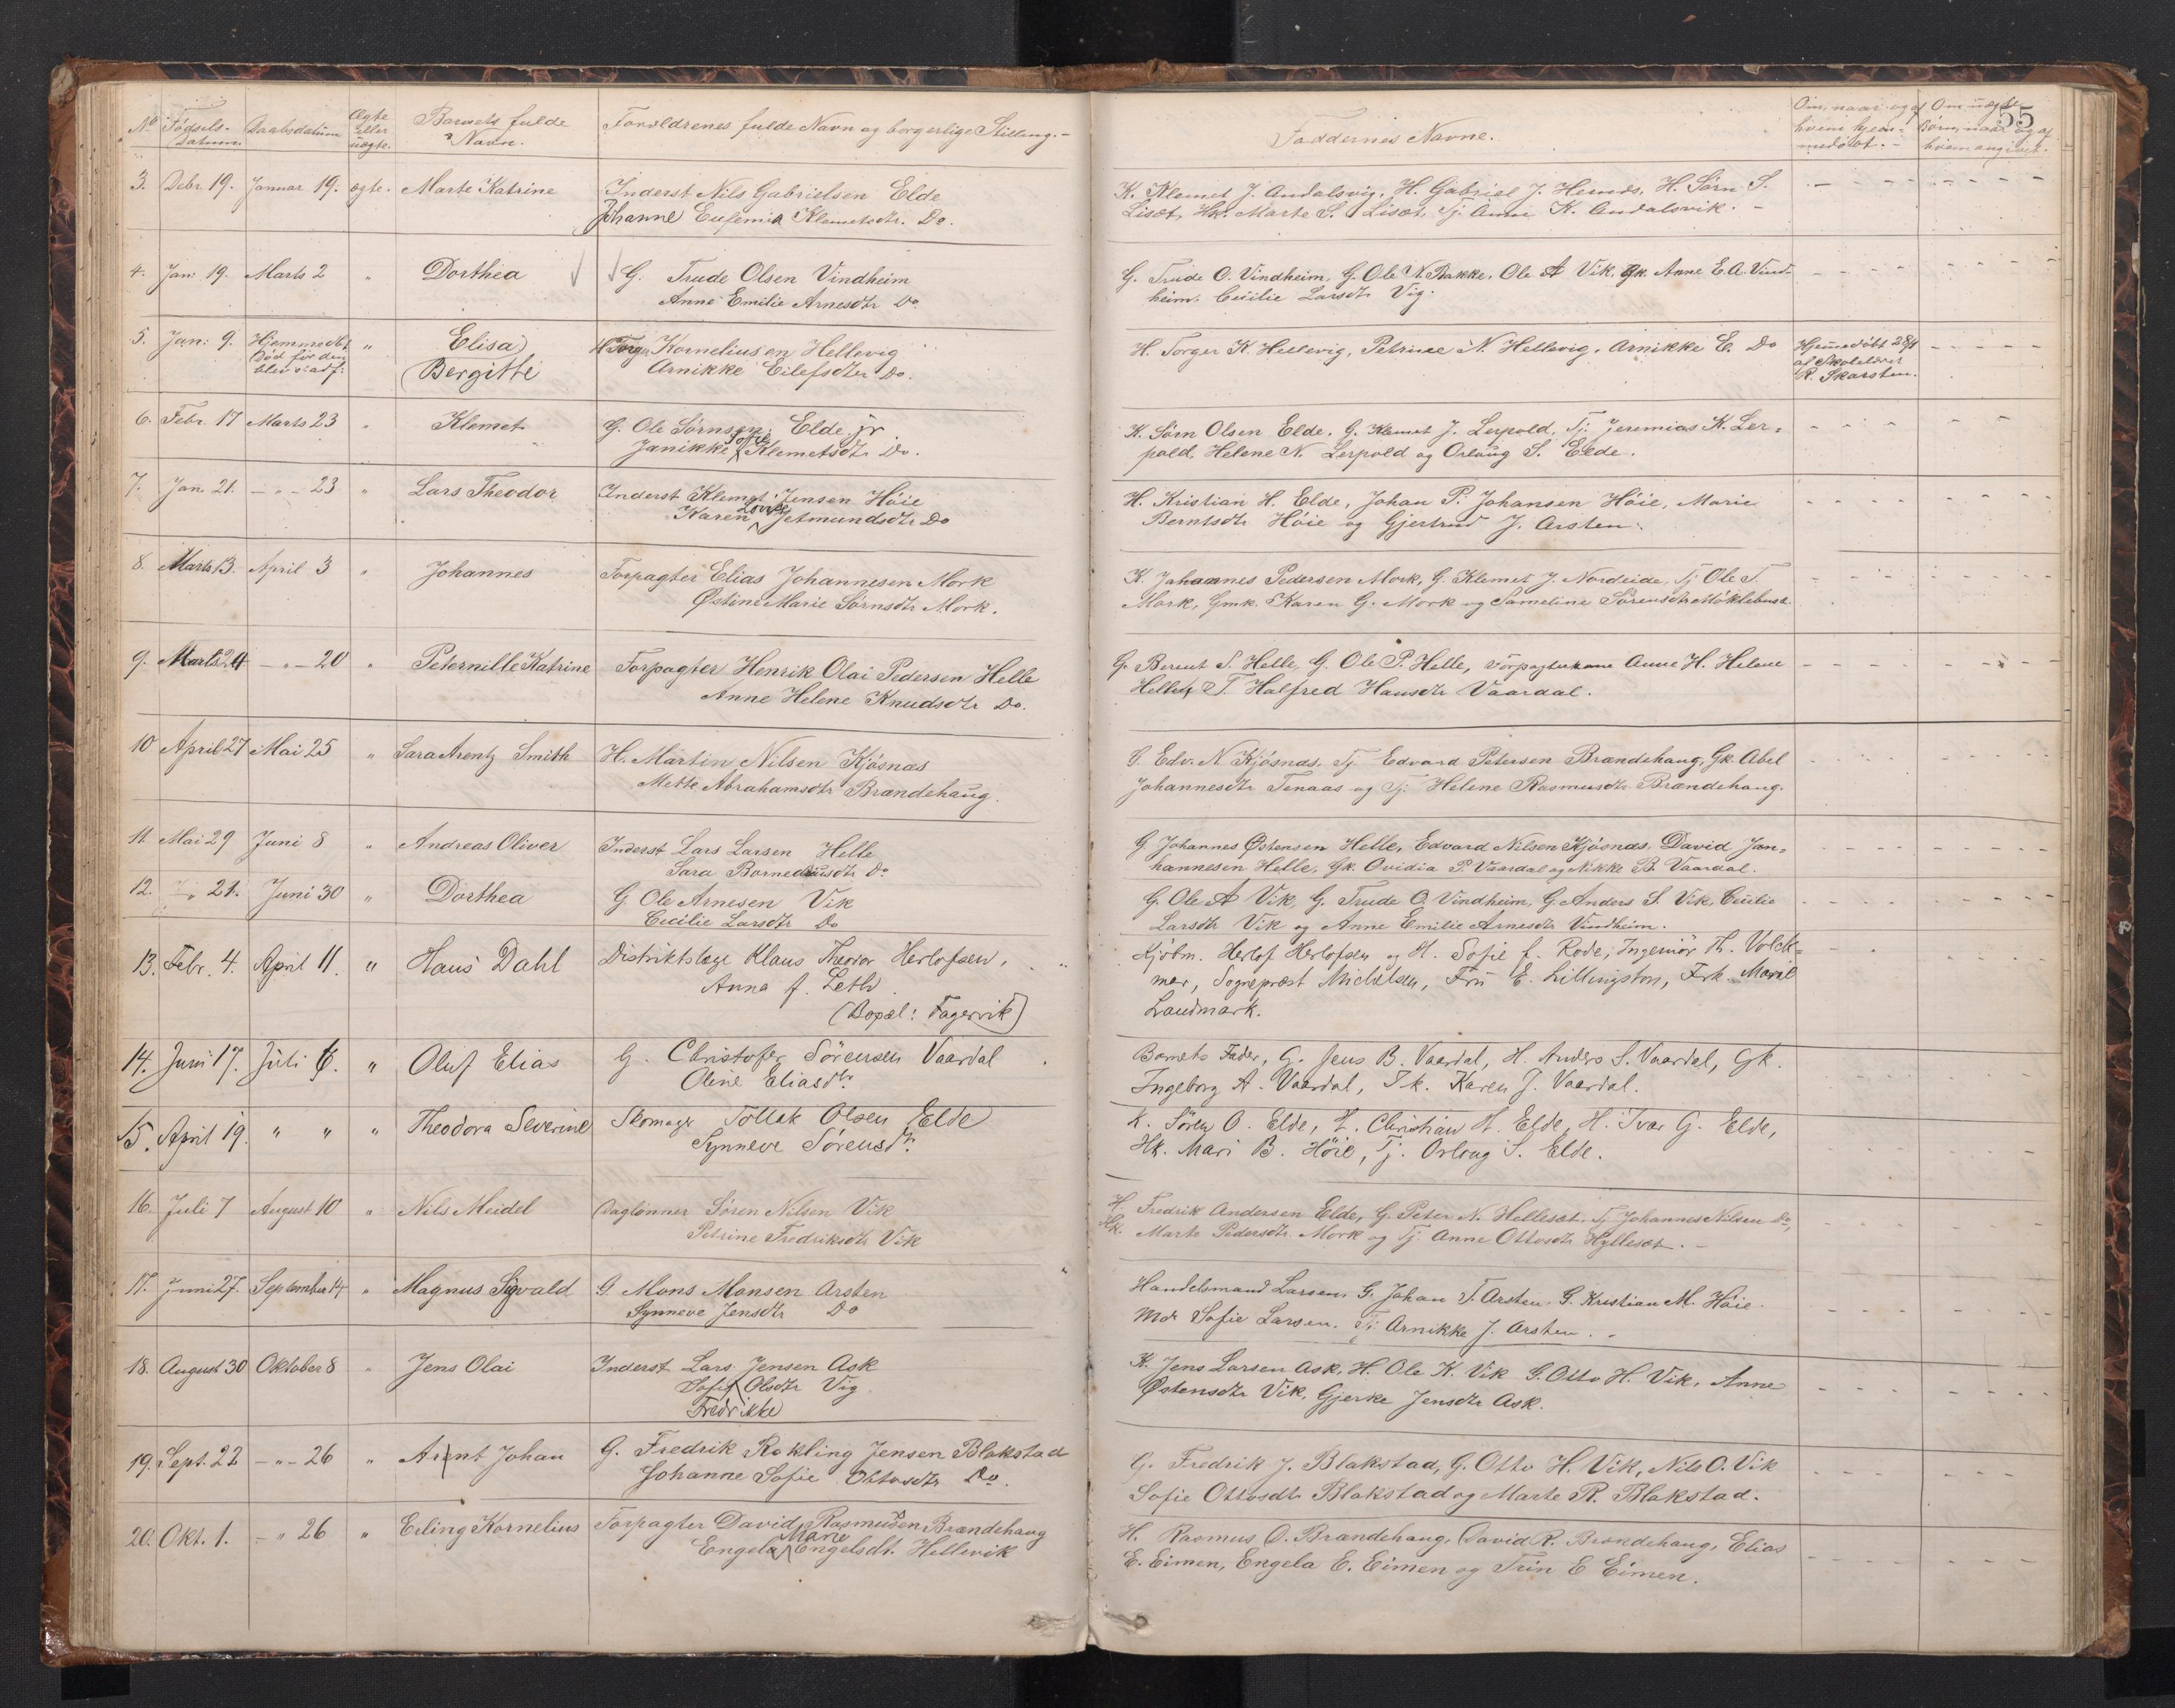 55
No Fødsels-Datum. Daabsdatum Ægte eller uægte. Barnets fulde Navn. Forældrenes fulde Navn og borgerlige Stilling.- Faddernes Navne. Om, naar og af hvem hjemmedøbt.- Om uægte Børn, naar og af hvem angivet.-
3. Debr. 19. Januar 19. ægte. Marte Katrine Inderst Nils Gabrielsen Elde K. Klemet J. Andalsvig, H. Gabriel J. H. Sørn S.
Johanne Eufemia Klemetsdtr. Do. Lisæt, Hk. Marte S. Lisæt, Tj. Anne K. Andalsvik. -
4. Jan: 19. Marts 2 " Dorthea G. Trude Olsen Vindheim G. Trude O. Vindheim, G. Ole N. Bakke, Ole A Vik, Gk. Anne E. A. Vind-
Anne Emilie Arnesdtr Do. heim. Cecilie Larsdtr Vig.
5. Jan: 9. Hjemmedøbt " Elisa H Torger Korneliusen Hellevig H. Torger K. Hellevig, Petrine N. Hellevig, Arnikke E. Do Hjemmedøbt
Død før den blev stadf: Bergitte Arnikke Eilefsdtr Do. af Skolelærer R. Skarsten.
6. Febr. 17 Marts 23 " Klemet G. Ole Sørnsen Elde jr K. Sørn Olsen Elde, G. Klemet J. Lerpold, Tj. Jeremias K. Ler-
Janikke Sofie Klemetsdtr Do. pold, Helene N. Lerpold og Orloug S. Elde.
7. Jan. 21. - " - 23 " Lars Theodor Inderst Klemet Jensen Høie H. Kristian H. Elde, Johan P. Johansen Høie, Marie
Karen Lovise Jetmundsdtr Do Berntsdtr Høie og Gjertrud J. Arsten.
8. Marts 13. April 3 " Johannes Forpagter Elias Johannesen Mork K. Johannes Pedersen Mork, G. Klemet J. Nordeide, Tj Ole T.
Østine Marie Sørnsdtr Mork. Mork, Gmk. Karen G. Mork og Sameline Sørensdtr Møklebust.
9. Marts 24 - " - 20 " Peternille Katrine Forpagter Henrik Olai Pedersen Helle G. Berent S. Helle, G. Ole P. Helle, Forpagterkone Anne H. Helene
Anne Helene Knudsdtr Do. Helle, T. Halfred Hansdtr Vaardal.
10 April 27 Mai 25 " Sara Arentz Smith H. Martin Nilsen Kjøsnæs G. Edv. N Kjøsnæs, Tj Edvard Petersen Brandehaug, Gk. Abel
Mette Abrahamsdtr Brandehaug. Johannesdtr Tenaas og Tj. Helene Rasmusdtr Brandehaug.
11. Mai 29 Juni 8 " Andreas Oliver Inderst Lars Larsen Helle G. Johannes Østensen Helle, Edvard Nilsen Kjøsnæs, David Jon-
Sara Do hannesen Helle, Gk. Ovidia P. Vaardal og Nikke B. Vaardal.
12. " 21. Juni 30 " Dorthea G. Ole Arnesen Vik G. Ole A Vik, G. Trude O Vindheim, G. Anders S. Vik, Cecilie
Cecilie Larsdtr Do Larsdtr Vik og Anne Emilie Arnesdtr Vindheim.
13. Febr. 4. April 11. " Hans Dahl Distriktslæge Klaus Theodor Herlofsen, Kjøbm. Herlof Herlofsen og H. Sofie f. Rode, Ingeniør Th. Volck-
Anna f. Leth mar, Sognepræst Michelsen, Fru E. Lillingston, Frk. Marie
(Bopæl: Fagervik) Landmark.
14. Juni 17. Juli 6. " Oluf Elias G. Christofer Sørensen Vaardal Barnets Fader, G. Jens B. Vaardal, H. Anders S. Vaardal, Gk.
Oline Eliasdtr Ingeborg A. Vaardal, Tk. Karen J. Vaardal.
15. April 19. " " " Theodora Severine Skomager Tollak Olsen Elde K. Søren O. Elde, H. Christian H. Elde, H. Ivar G. Elde,
Synneve Sørensdr. Hk. Mari B. Høie, Tj. Orloug S. Elde.
16. Juli 7 August 10 " Nils Meidel Daglønner Søren Nilsen Vik H. Fredrik Andersen Elde, G. Peter N. Hellesæt, Tj Johannes Nilsen Do,
Petrine Fredriksdtr Vik Hk. Marte Pedersdtr. Mork og Tj. Anne Ottosdtr Hyllesæt. -
17. Juni 27. September 14 " Magnus Sigvald G. Mons Monsen Arsten Handelsmand Larsen, G. Johan T. Arsten, G. Kristian M. Høie.
Synneve Jensdtr Do Md. Sofie Larsen. Tj: Arnikke J. Arsten. -
18. August 30 Oktober 8 " Jens Olai Inderst Lars Jensen Ask K. Jens Larsen Ask, H. Ole K. Vik G. Otto H. Vik, Anne
Sofie Olsdtr Vig Østensdtr Vik, Gjerke Jensdtr Ask.
Fredrikke
19. Sept. 22 - " - 26 " Arent Johan G. Fredrik Rokling Jensen Blakstad G. Fredrik J. Blakstad, G. Otto H. Vik, Nils O. Vik
Johanne Sofie Ottosdtr Do. Sofie Ottosdtr Blakstad og Marte R. Blakstad.
20. Okt. 1. - " 26 " Erling Kornelius Forpagter David Rasmussen Brandehaug H. Rasmus O. Brandehaug, David R. Brandehaug, Elias
Engela Marie Engelsdt. Hellevik E. Eimen, Engela E. Eimen og Trin E Eimen.